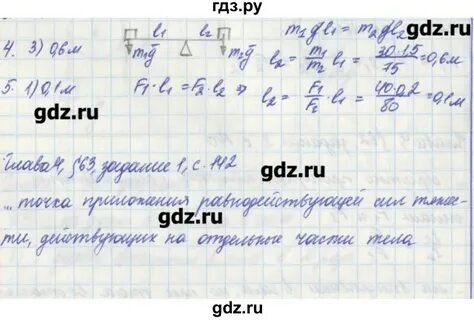 гдз.ру
l₁ l₂ m₁gl₁ = m₂gl₂
4. 3) 0,6 м m₁g m₂g l₂ = m₁/m₂ l₁ = 30·15/75 = 0,6 м
gdz.ru gdz.ru
5. 1) 0,1 м F₁·l₁ = F₂·l₂ ⇒ l₂ = F₁/F₂ · l₁ = 40·0,2/80 = 0,1 м
gdz.ru
Глава 4, §63, задание 1, с. 142
gdz.ru
... точка приложения равнодействующей сил тяжес-
ти, действующих на отдельные части тела
gdz.ru gdz.ru